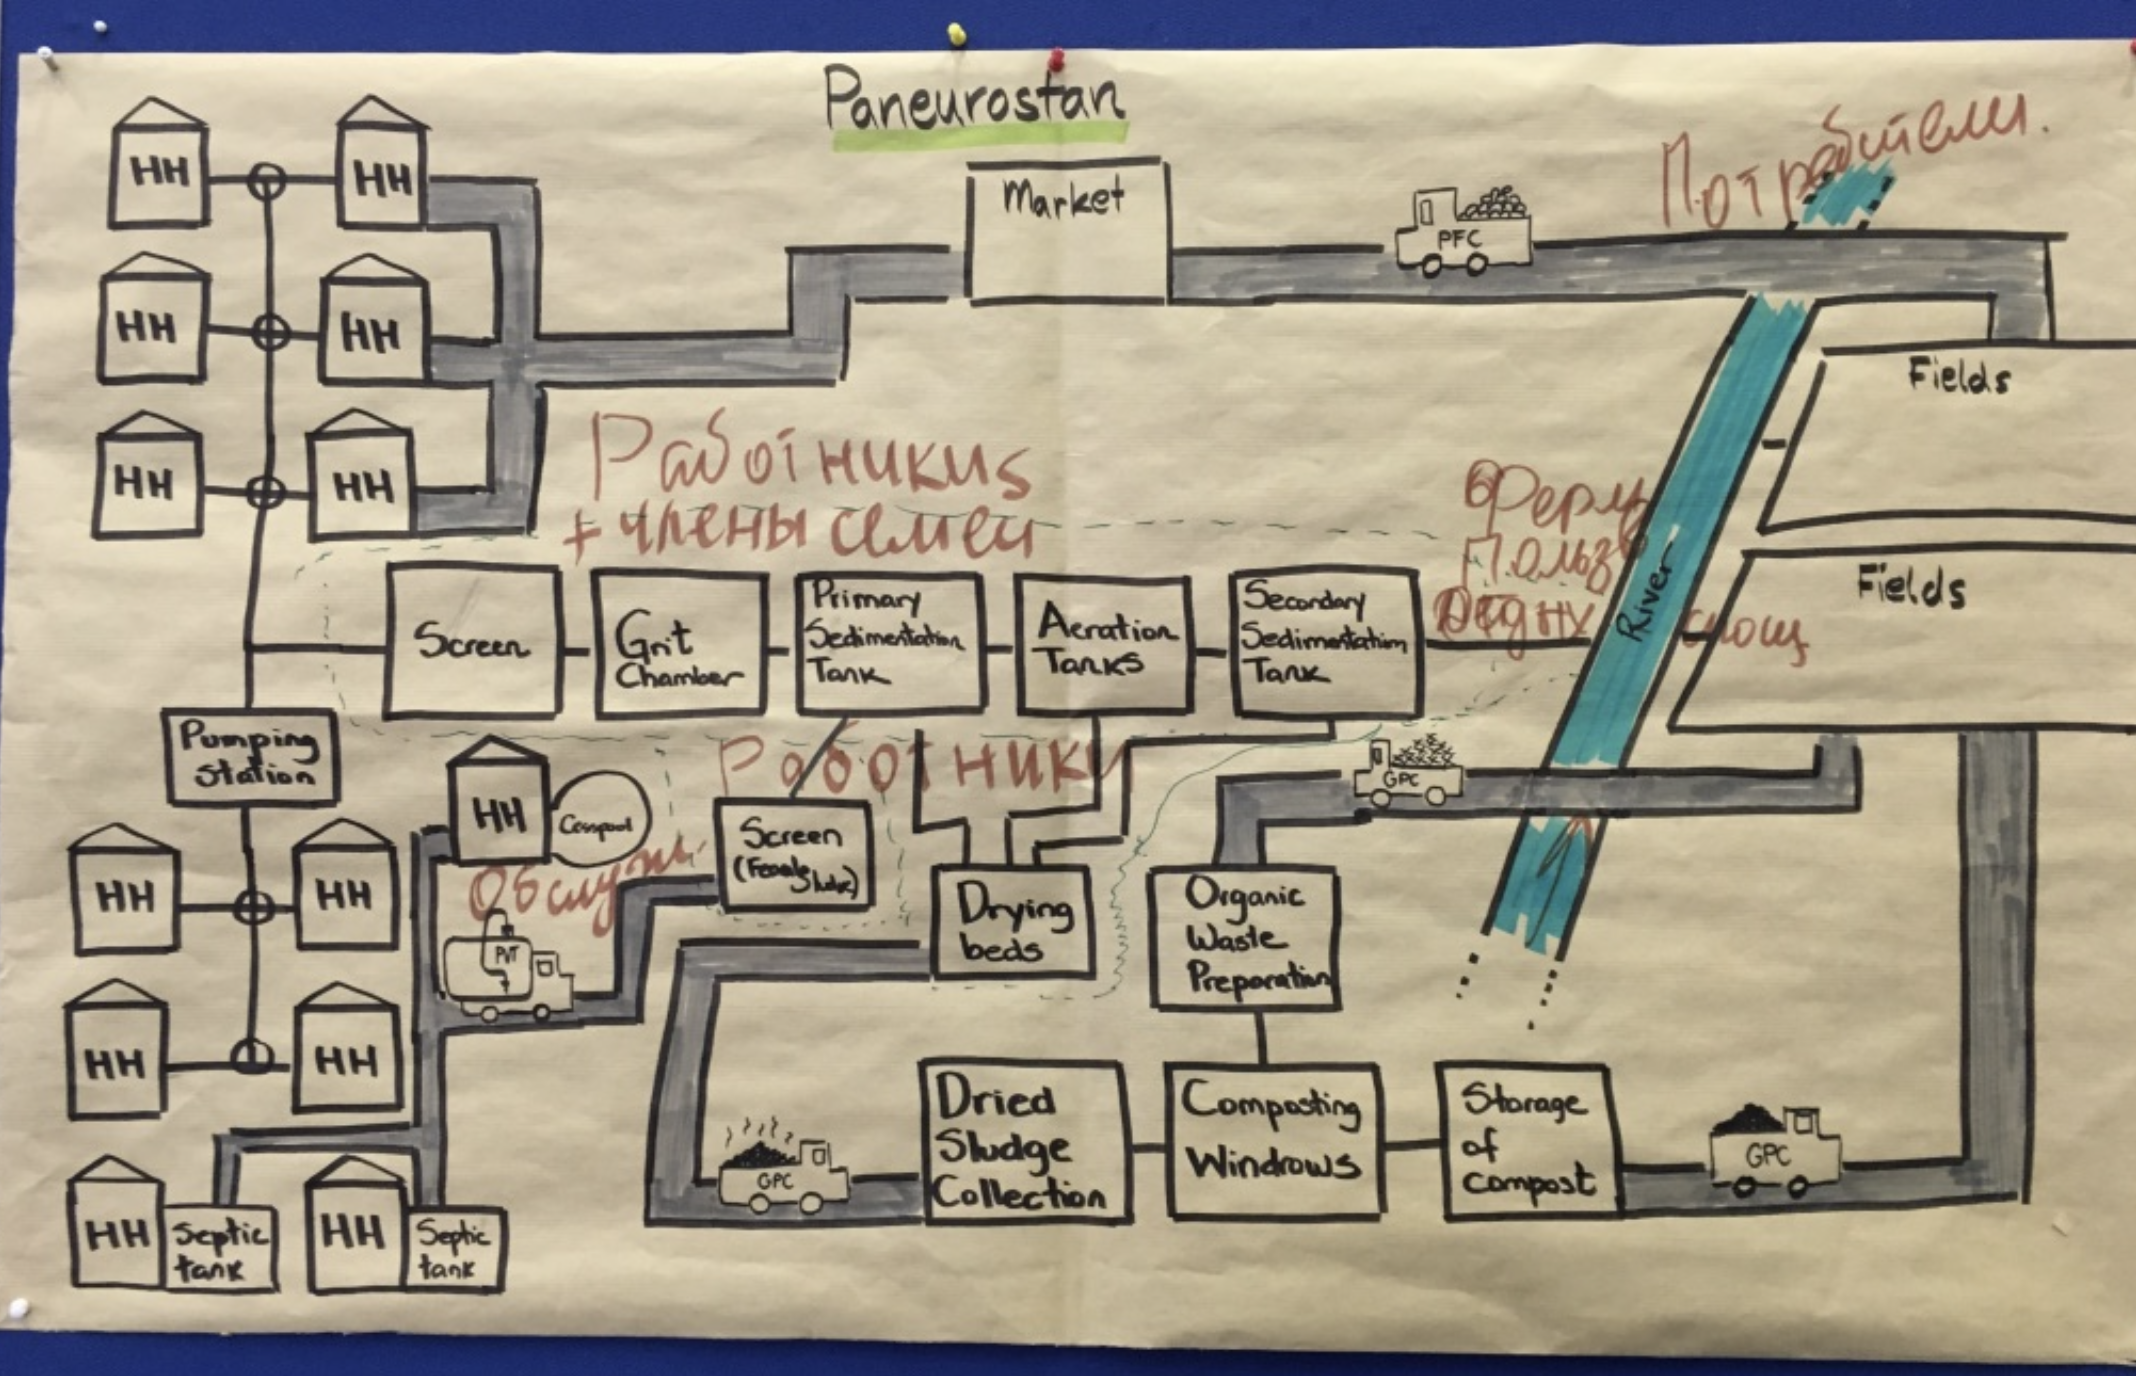 Paneurostan
Потребители.
HH
HH
Market
PFC
HH
HH
Fields
HH
HH
Работники
+ члены семей
Fields
River
Screen
Grit
Chamber
Primary
Sedimentation
Tank
Aeration
Tanks
Secondary
Sedimentation
Tank
Pumping
station
Работники
GPC
HH
Cesspool
Screen
HH
HH
PVT
Drying
beds
Organic
Waste
Preparation
HH
HH
Dried
Sludge
Collection
Composting
Windrows
Storage
of
compost
GPC
GPC
HH
Septic
tank
HH
Septic
tank